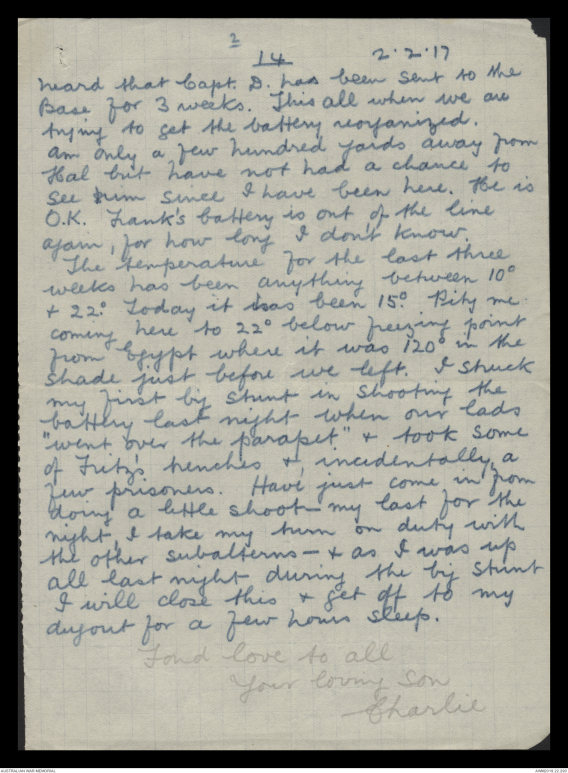 2
14 2.2.17
heard that Capt. D. has been sent to the
Base for 3 weeks. This all when we are
trying to get the battery reorganized.
am only a few hundred yards away from
Hal but have not had a chance to
see him since I have been here. He is
O.K. Frank's battery is out of the line
again, for how long I don't know.
The temperature for the last three
weeks has been anything between 10°
+ 22°. Today it has been 15°. Pity me
coming here to 22° below freezing point
from Egypt where it was 120° in the
shade just before we left. I struck
my first big stunt in shooting the
battery last night when our lads
"went over the parapet" + took some
of Fritz's trenches +, incidentally, a
few prisoners. Have just come in from
doing a little shoot – my last for the
night, I take my turn on duty with
the other subalterns – + as I was up
all last night during the big stunt
I will close this + get off to my
dugout for a few hours sleep.
Fond love to all
Your loving son
Charlie
AUSTRALIAN WAR MEMORIAL